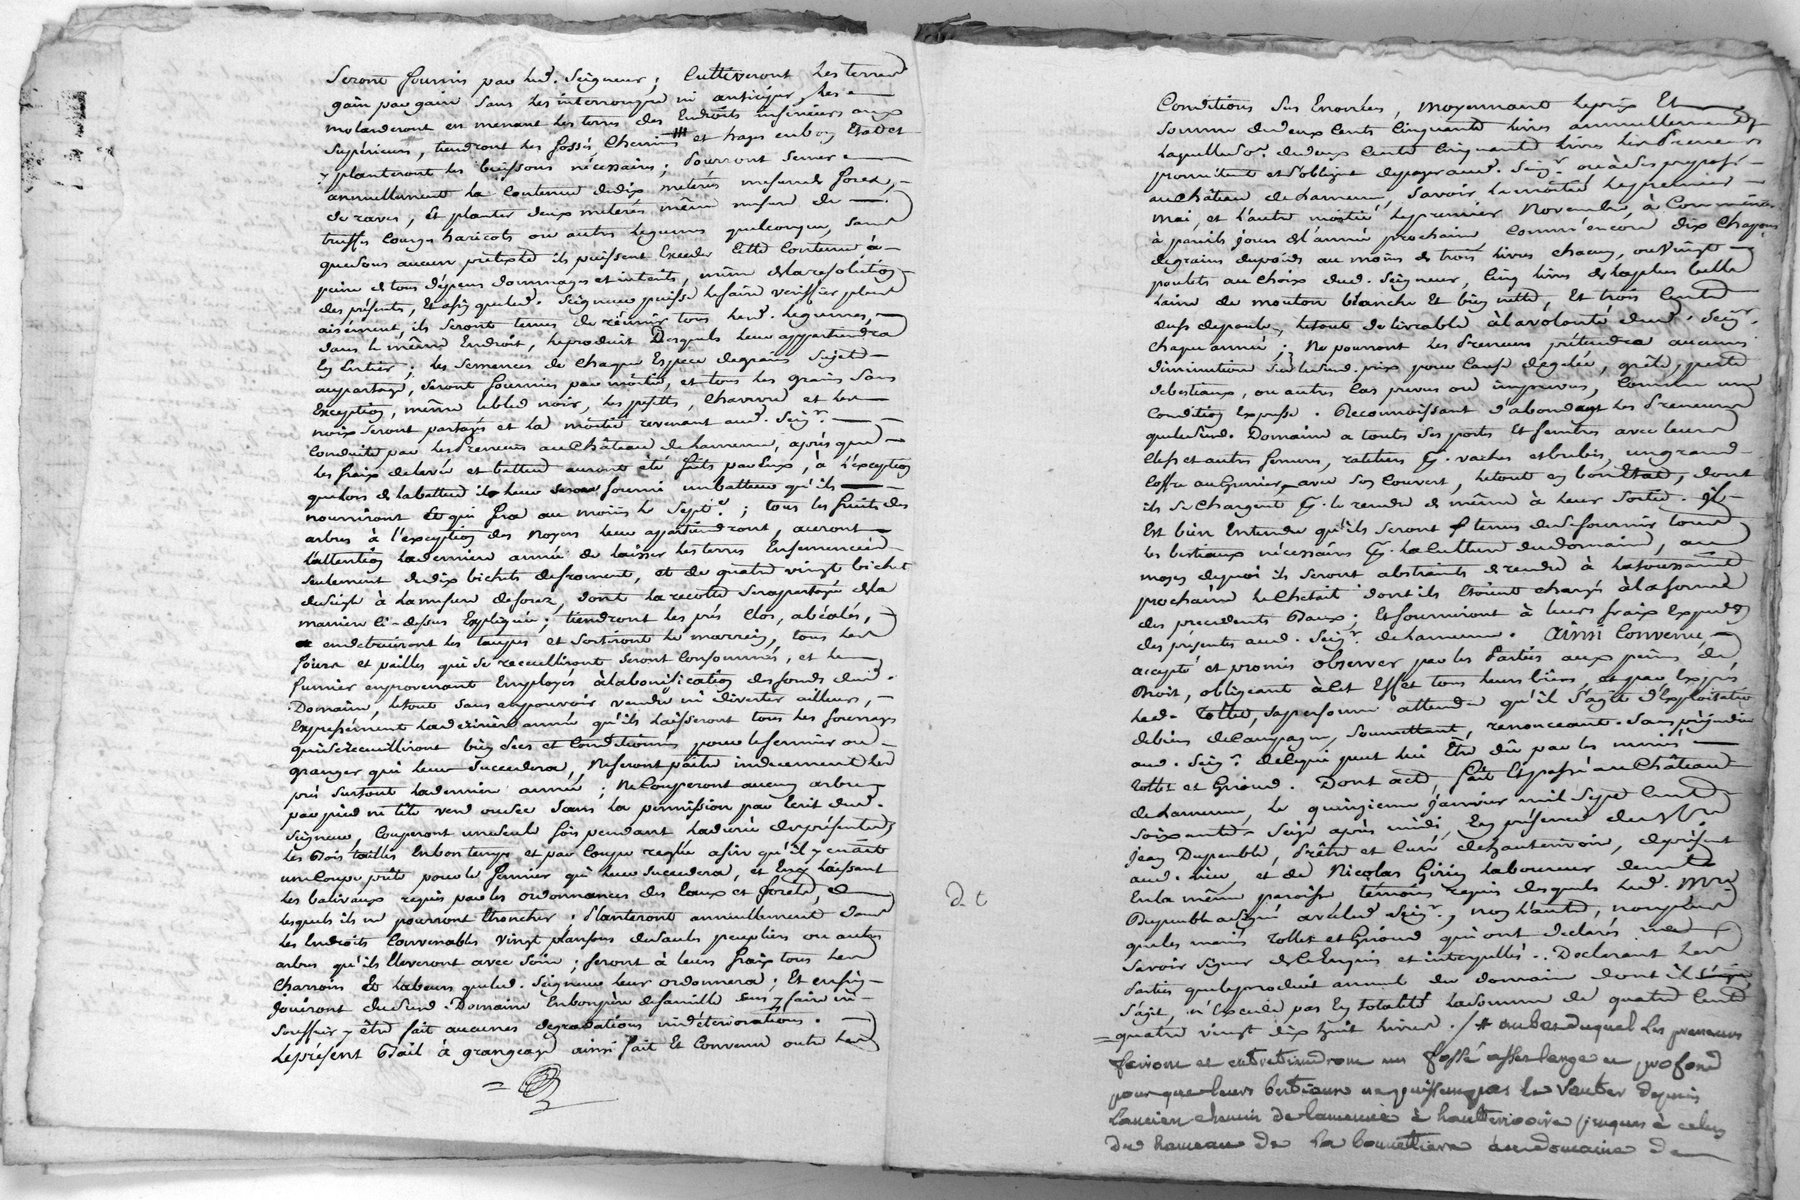 Seront fournis par led. Seigneur; Cultiveront les terres
gain par gain sans les interrompre ni anticiper, les
en menant les terres des Endroits inférieurs aux
Supérieurs, tiendront les fossés, Chemins # et hayes en bon Etat et
y planteront les buissons nécessaires; Pourront semer
annuellement la Contenue de dix meterés mesure de forez,
de raves, et planter deux meterés même mesure de
truffes Courges haricots ou autres legumes quelconques, sans
que sous aucun pretexte ils puissent Exceder Cette Contenue, à
peine de tous dépens dommages et interêts, même de la resolution
des présentes, Et afin que led. Seigneur puisse le faire verifier plus
aisément, ils seront tenus de réunir tous lesd. legumes,
dans le même Endroit, le produit Desquels leur appartiendra
En Entier; les Semences de Chaque Espece de grains sujets
au partage, seront fournies par moitié, et tous les grains sans
Exception, même le bled noir, les pesettes, Chanvre et les
noix seront partagés et la moitié revenant aud. Seigr.
Conduite par les Preneurs au Château de Lamenue, après que
les fraix de levée et batture auront été faits par Eux, à l'exception
que lors de la batture il leur sera fourni un batteur qu'ils
nourriront Et qui fera au moins le Septe.; tous les fruits des
arbres à l'exception des Noyers leur appartiendront, auront
l'attention la derniere année de laisser les terres Ensemencées
seulement de dix bichets de froment, et de quatre vingt bichets
de seigle à la mesure de forez, dont la recolte sera partagée de la
maniere Ci-dessus Expliquée; tiendront les prés Clos, abéalés,
en detruiront les taupes et sortiront le marrein, tous les
foins et pailles qui se recueilliront seront Consommés, et le
fumier en provenant Employés à la bonification des fonds dud.
Domaine, le tout sans en pouvoir vendre ni divertir ailleurs,
Expressément la derniere année qu'ils laisseront tous les fourrages
qui se recueilliront bien secs et Conditionnés pour le fermier ou
granger qui leur Succedera, Ne feront paitre indecemment les
prés surtout la derniere année; Ne Couperont aucun arbre
par pied ni tête verd ou sec sans la permission par Ecrit dud.
Seigneur, Couperont une seule fois pendant la durée des présentes
les Bois taillis En bon temps et par Coupe reglée afin qu'il y en ait
une Coupe prête pour le fermier qui leur Succedera, et En y laissant
les baliveaux requis par les ordonnances des Eaux et forets,
lesquels ils ne pourront Etroncher; Planteront annuellement dans
les Endroits Convenables vingt plançons de saules peupliers ou autres
arbres qu'ils Eleveront avec soin; feront à leurs fraix tous les
Charrois Et labeurs que led. Seigneur leur ordonnera; Et enfin
jouiront dud. Domaine En bon père de famille sans y faire ni
souffrir y être fait aucunes degradations ni déteriorations.
Le présent Bail à grangeage ainsi fait Et Convenu outre les
Conditions sus Enoncées, moyennant le prix Et
somme de deux Cents Cinquante livres annuellement,
Laquelle se. de deux Cents Cinquante livres les Preneurs
promettent et s'obligent de payer aud. Seigr. ou à ses preposés
au Château de Lamenue, savoir la moitié le premier
Mai, et l'autre moitié, le premier Novembre, à Commencer
à pareils jours de l'année prochaine Comm' encore dix Chapons
de grains du poids au moins de trois livres chacun, ou vingt
poulets au choix dud. Seigneur, Cinq livres de la plus belle
laine de mouton blanche Et bien nette, Et trois Cents
œufs de poule, le tout delivrable à la volonté dud. Seigr.
Chaque année; Ne pourront les Preneurs prétendre aucune
diminution sur led. prix pour Cause de gelée, grêle, perte
de bestiaux, ou autres Cas prevus ou imprevus, Comme une
Condition Expresse. Reconnoissant d'abondant les Preneurs
que led. Domaine a toutes ses portes Et fenêtres avec leurs
Clefs et autres ferrures, rateliers pr. vaches et brebis, un grand
Coffre au Grenier, avec son Couvert, le tout en bon Etat, dont
ils se Chargent pr. le rendre de même à leur Sortie. Il
Est bien Entendu qu'ils seront tenus de se fournir tous
les bestiaux nécessaires pr. la Culture du domaine, au
moyen de quoi ils seront abstraints de rendre à la toussaint
prochaine le Cheptail dont ils Etoient chargés à la forme
des precedents Baux; Et fourniront à leurs fraix Expedon
des présentes aud. Seigr. de Lamenue. Ainsi Convenu
accepté et promis observer par les Parties aux peines de
Droit, obligeant à Cet Effet tous leurs biens, et par Exprès
led. Tollet, sa personne attendu qu'il s'agit d'Exploitation
de biens de Campagne, Soumettant, renonceant. sans préjudice
aud. Seigr. de Ce qui peut lui Etre dû par les mariés
Tollet et Giroud. Dont acte, fait Et passé au Château
de Lamenue, le quinzieme Janvier mil Sept Cents
soixante-Seize après midi, En présence de Mre
Jean Dupeuble, Prêtre et Curé de hauterivoire, de présent
aud. lieu, et de Nicolas Girin laboureur demeurt.
En la même paroisse temoins requis desquels led. Mre
Dupeuble a signé avec led. Seigr., non l'autre, non plus
que les mariés Tollet et Giroud qui ont declarés ne
savoir signer de Ce Enquis et interpellés.. Declarant les
Parties que le produit annuel du domaine dont il s'agit
s'agit, n'Excede pas En totalité la somme de quatre Cents
quatre vingt dix huit livres. / # au bas duquel les preneurs
feront et entretiendront un fossé asses large et profond
pour que leurs bestiaux ne puissent pas le sauter depuis
l'ancien chemin de Lamenue à hauterivoire jusques à celui
du hameau de la bonnetiere au domaine de